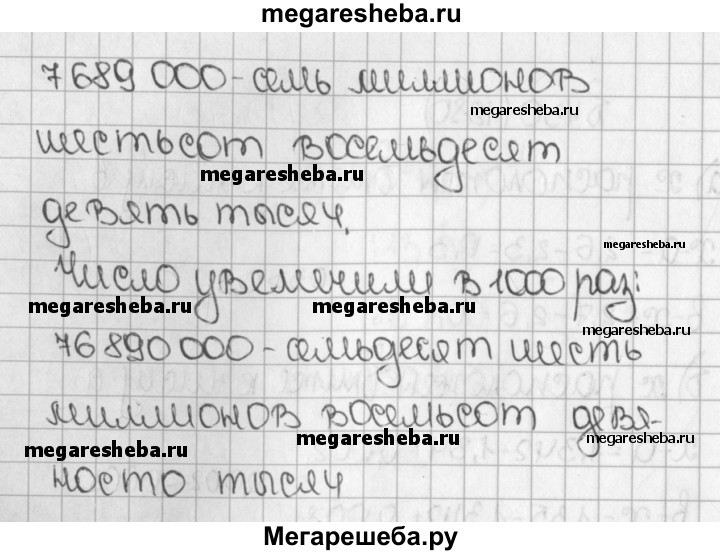 megaresheba.ru
7689 000 - семь миллионов
megaresheba.ru
шестьсот восемьдесят
megaresheba.ru
девять тысяч.
megaresheba.ru
Число увеличили в 1000 раз:
megaresheba.ru megaresheba.ru
76 890 000 - семьдесят шесть
миллионов восемьсот девя-
megaresheba.ru megaresheba.ru megaresheba.ru
носто тысяч
Мегарешеба.ру